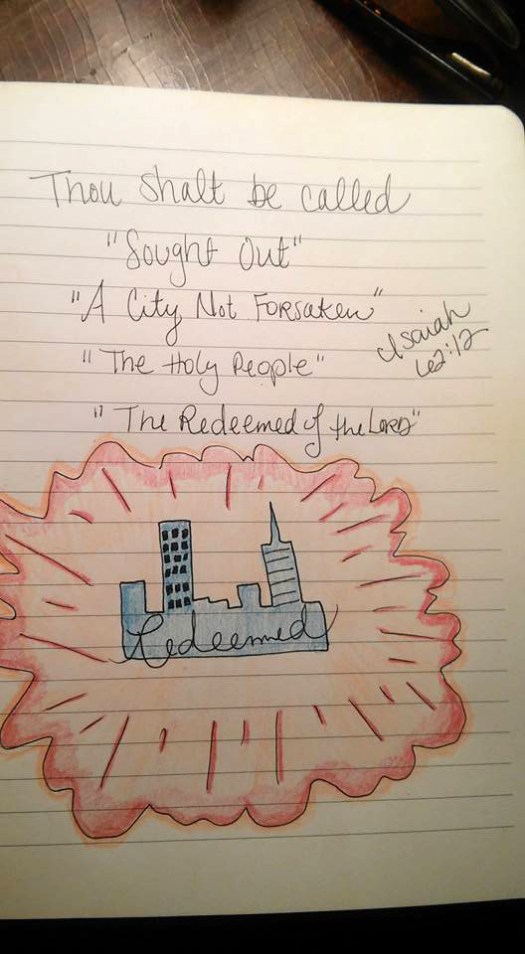 Thou shalt be called
"Sought Out"
"A City Not Forsaken"
"The Holy People"
"The Redeemed of the LORD"
Isaiah
62:12
Redeemed